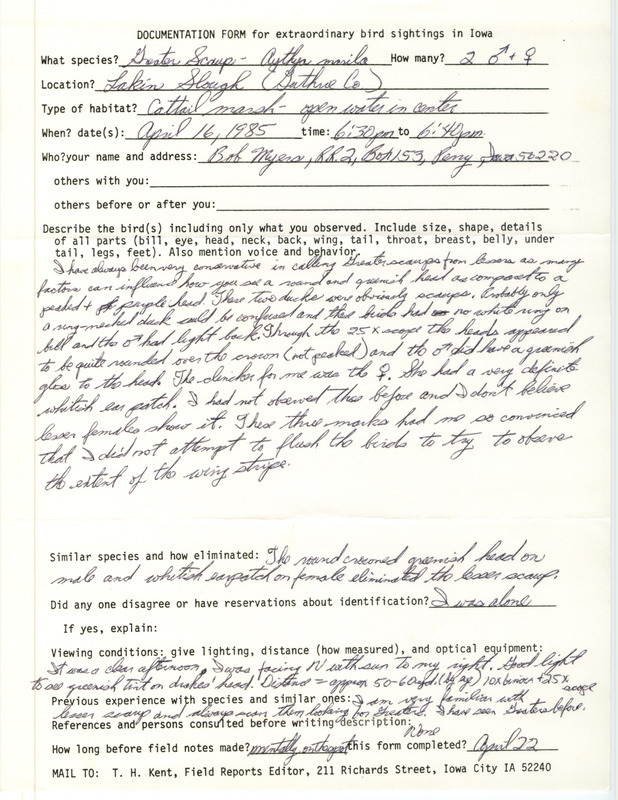 DOCUMENTATION FORM for extraordinary bird sightings in Iowa
What species? Greater Scaup - Aythya marila How many? 2 ♂ + ♀
Location? Lakin Slough (Guthrie Co)
Type of habitat? Cattail marsh - open water in center
When? date(s): April 16, 1985 time: 6:30pm to 6:40pm
Who?your name and address: Bob Myers, R.R.2, Box 153, Perry, Iowa 50220
others with you:
others before or after you:
Describe the bird(s) including only what you observed. Include size, shape, details
of all parts (bill, eye, head, neck, back, wing, tail, throat, breast, belly, under
tail, legs, feet). Also mention voice and behavior.
I have always been very conservative in calling Greater scaups from lessers as many
factors can influence how you see a round and greenish head as compared to a
peaked + purple head. These two ducks were obviously scaups. Probably only
a ring-necked duck could be confused and these birds had no white ring on
bill and the ♂ had light back. Through the 25x scope the heads appeared
to be quite rounded over the crown (not peaked) and the ♂ did have a greenish
gloss to the head. The clincher for me was the ♀. She had a very definite
whitish ear patch. I had not observed this before and I don't believe
lesser females show it. These three marks had me so convinced
that I did not attempt to flush the birds to try to observe
the extent of the wing stripe.
Similar species and how eliminated: The round crowned greenish head on
male and whitish earpatch on female eliminated the lesser scaup.
Did any one disagree or have reservations about identification? I was alone
If yes, explain:
Viewing conditions: give lighting, distance (how measured), and optical equipment:
It was a clear afternoon, I was facing N with sun to my right. Good light
to see greenish tint on drakes' head. Distance = approx 50-60yd. (by eye) 10x binoc + 25x scope
Previous experience with species and similar ones: I am very familiar with
lesser scaup and always scan them looking for Greaters. I have seen Greaters before.
References and persons consulted before writing description: None
How long before field notes made? mentally on the spot this form completed? April 22
MAIL TO: T. H. Kent, Field Reports Editor, 211 Richards Street, Iowa City IA 52240